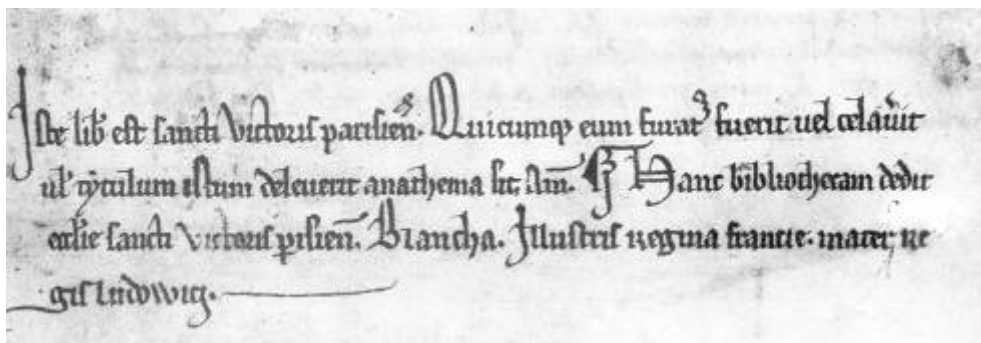 Iste lib̄ est sancti Victoris parisien̄. Quicumq; eum furat᷒ fuerit uel celau̾it
ul̾ tytulum istum deleuerit anathema sit. Am̄. ¶ Hanc bibliothecam dedit
eccl̄ie sancti Victoris ꝑisien̄. Blancha. Illustris regina francie. mater re
gis ludowici.